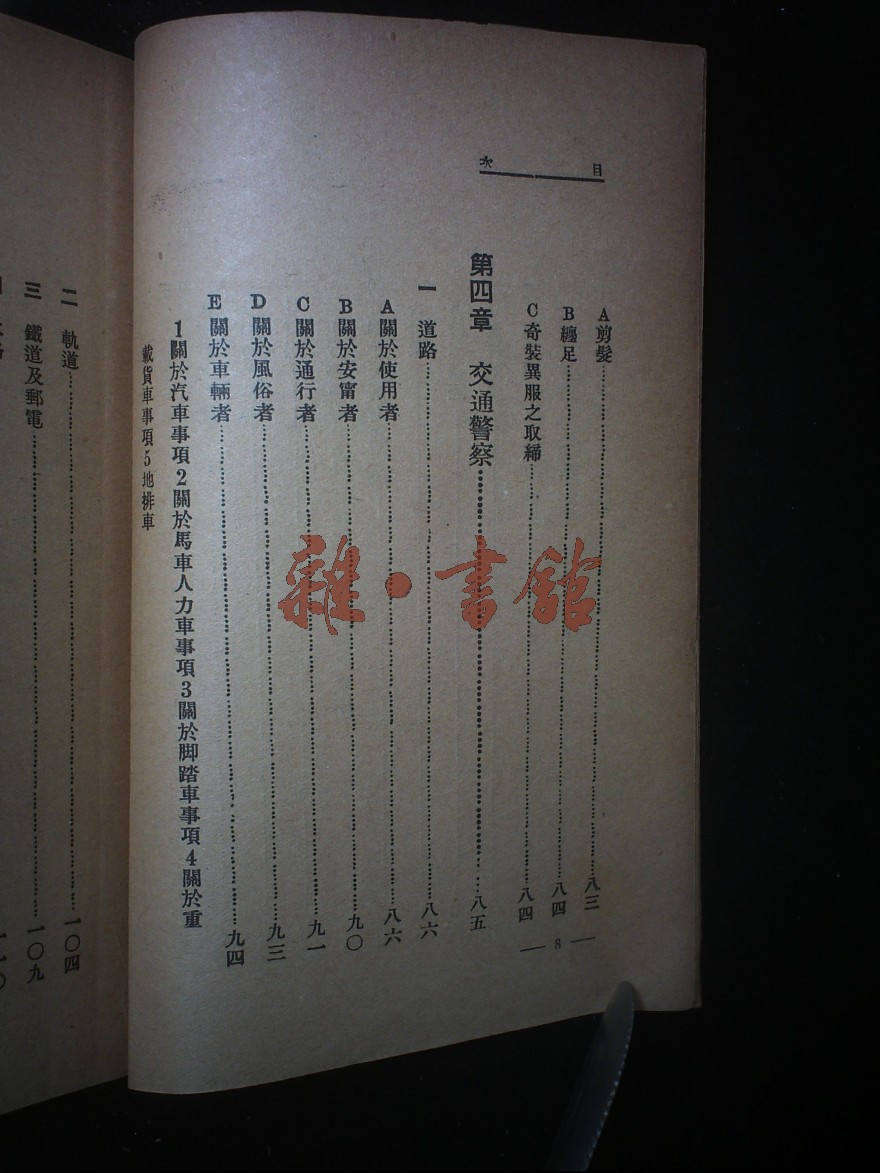 目次
A剪髮……八三
B纏足……八四
C奇裝異服之取締……八四
第四章 交通警察……八五
一 道路……八六
A關於使用者……八六
B關於安甯者……九〇
C關於通行者……九一
D關於風俗者……九三
E關於車輛者……九四
1關於汽車事項2關於馬車人力車事項3關於脚踏車事項4關於重
載貨車事項5地排車
— 8 —
二 軌道……一〇四
三 鐵道及郵電……一〇九
雜·書館